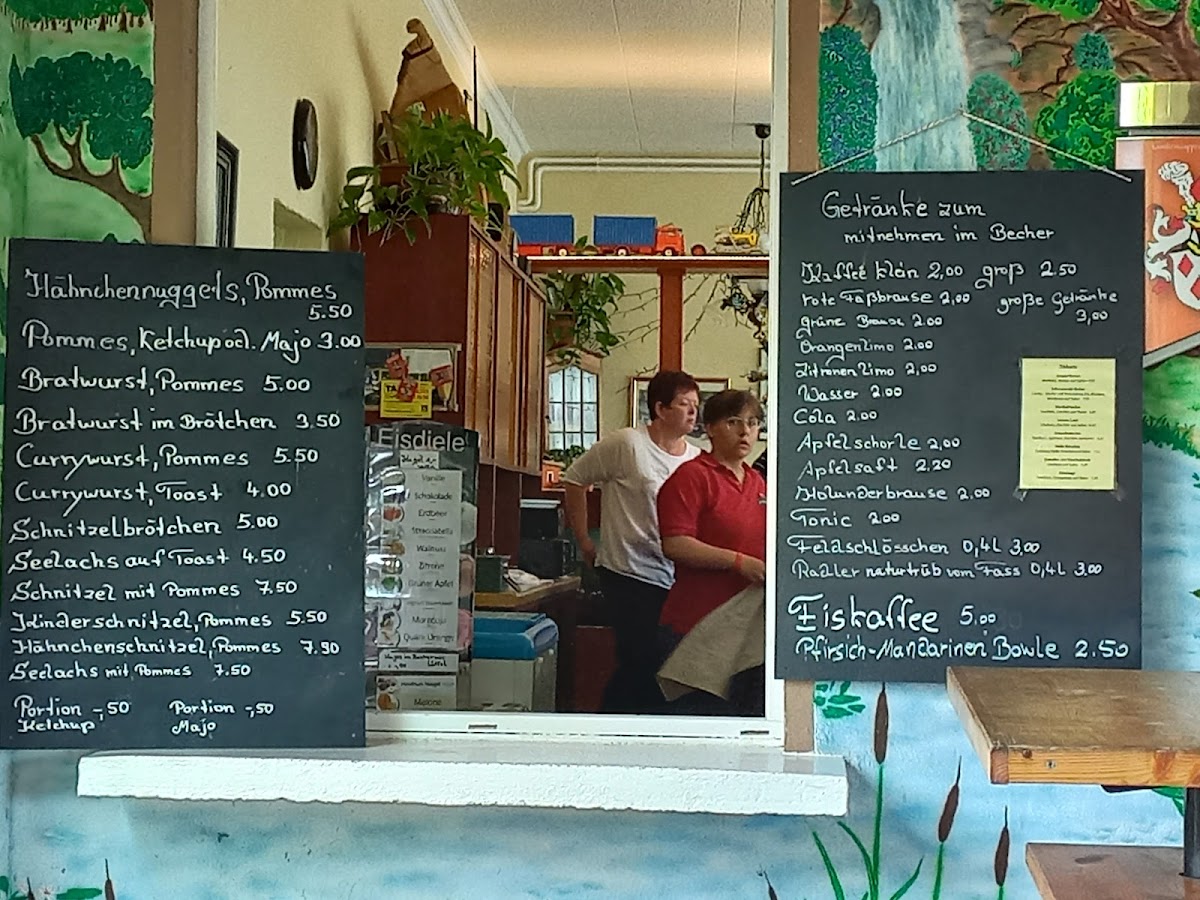 Hähnchennuggets, Pommes
5.50
Pommes, Ketchup od. Majo 3.00
Bratwurst, Pommes 5.00
Bratwurst im Brötchen 3.50
Currywurst, Pommes 5.50
Currywurst, Toast 4.00
Schnitzelbrötchen 5.00
Seelachs auf Toast 4.50
Schnitzel mit Pommes 7.50
Kinderschnitzel, Pommes 5.50
Hähnchenschnitzel, Pommes 7.90
Seelachs mit Pommes 7.50
Portion -,50 Portion -,50
Ketchup Majo
Eisdiele
Vanille
Schokolade
Erdbeer
Stracciatella
Walnuss
Zitrone
Grüner Apfel
Melone
Getränke zum
mitnehmen im Becher
Kaffee klein 2,00 groß 2.50
rote Faßbrause 2,00 große Getränke
3,00
grüne Brause 2.00
Orangenlimo 2.00
Zitronenlimo 2,00
Wasser 2.00
Cola 2.00
Apfelschorle 2,00
Apfelsaft 2,20
Holunderbrause 2,00
Tonic 2.00
Feldschlösschen 0,4L 3,00
Radler naturtrüb vom Fass 0,4L 3.00
Eiskaffee 5,00
Pfirsich-Mandarinen Bowle 2.50